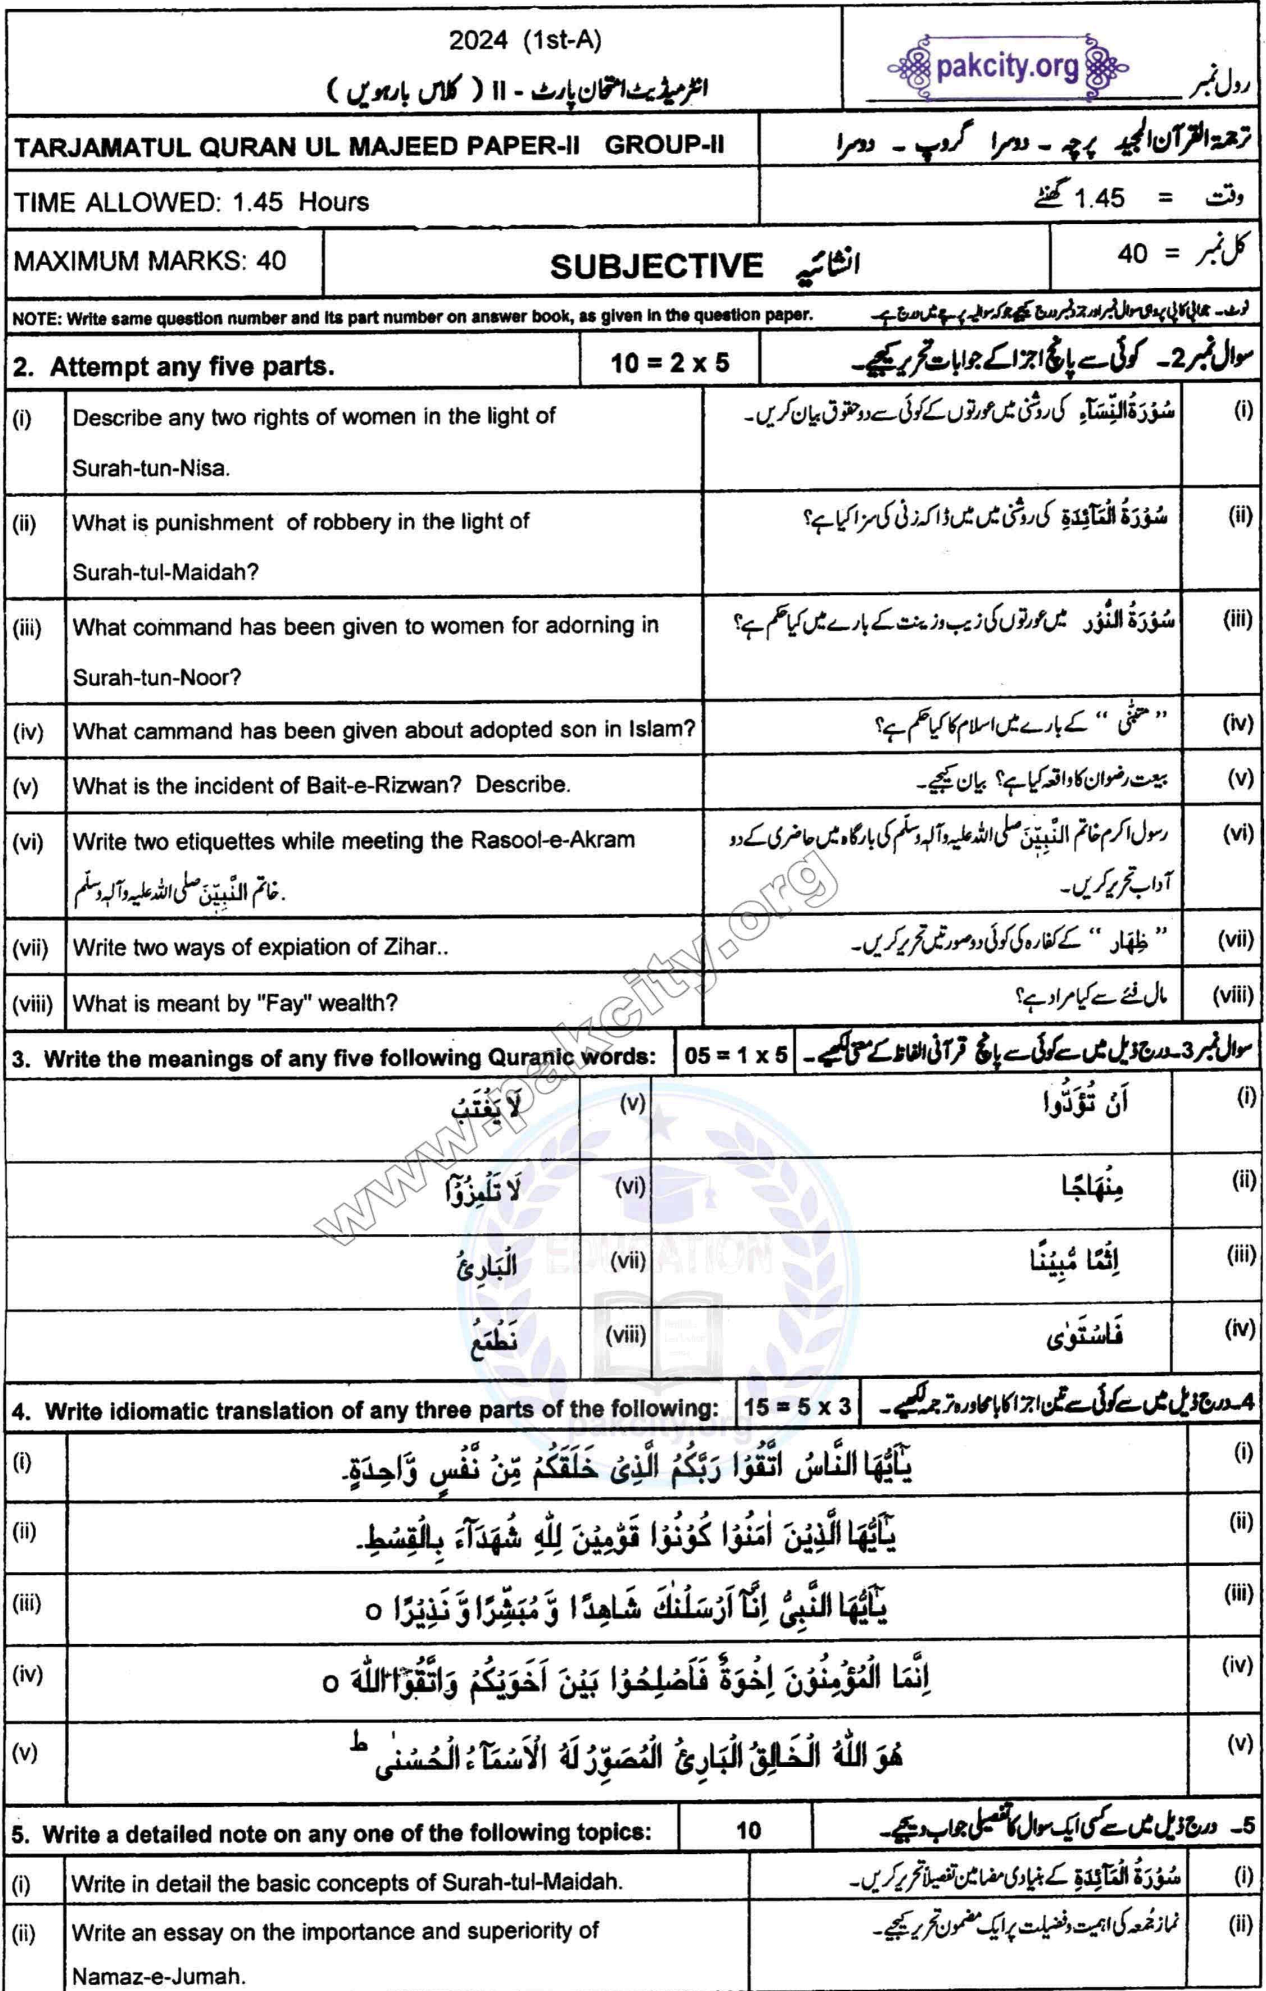 2024 (1st-A)
انٹرمیڈیٹ امتحان پارٹ - II ( کلاس بارہویں )
pakcity.org
رول نمبر
TARJAMATUL QURAN UL MAJEED PAPER-II GROUP-II
ترجمۃ القرآن المجید پرچہ - دوسرا گروپ - دوسرا
TIME ALLOWED: 1.45 Hours
وقت = 1.45 گھنٹے
MAXIMUM MARKS: 40
SUBJECTIVE انشائیہ
کل نمبر = 40
NOTE: Write same question number and its part number on answer book, as given in the question paper.
نوٹ۔ جوابی کاپی پر وہی سوال نمبر اور جزو نمبر درج کیجیے جو کہ سوالیہ پرچے میں درج ہے۔
2. Attempt any five parts.
10 = 2 x 5
سوال نمبر 2۔ کوئی سے پانچ اجزا کے جوابات تحریر کیجیے۔
(i) Describe any two rights of women in the light of
Surah-tun-Nisa.
سُوْرَۃُ النِّسَآءِ کی روشنی میں عورتوں کے کوئی سے دو حقوق بیان کریں۔ (i)
(ii) What is punishment of robbery in the light of
Surah-tul-Maidah?
سُوْرَۃُ الْمَآئِدَۃِ کی روشنی میں میں ڈاکہ زنی کی سزا کیا ہے؟ (ii)
(iii) What command has been given to women for adorning in
Surah-tun-Noor?
سُوْرَۃُ النُّوْر میں عورتوں کی زیب و زینت کے بارے میں کیا حکم ہے؟ (iii)
(iv) What cammand has been given about adopted son in Islam?
” متبنّٰی “ کے بارے میں اسلام کا کیا حکم ہے؟ (iv)
(v) What is the incident of Bait-e-Rizwan? Describe.
بیعت رضوان کا واقعہ کیا ہے؟ بیان کیجیے۔ (v)
(vi) Write two etiquettes while meeting the Rasool-e-Akram
خاتم النَّبِیّٖنَ صلی اللہ علیہ وآلہٖ وسلّم.
رسول اکرم خاتم النَّبِیّٖنَ صلی اللہ علیہ وآلہٖ وسلّم کی بارگاہ میں حاضری کے دو (vi)
آداب تحریر کریں۔
(vii) Write two ways of expiation of Zihar..
” ظِهَار “ کے کفارہ کی کوئی دو صورتیں تحریر کریں۔ (vii)
(viii) What is meant by "Fay" wealth?
مال فئے سے کیا مراد ہے؟ (viii)
3. Write the meanings of any five following Quranic words:
05 = 1 x 5
سوال نمبر 3۔ درج ذیل میں سے کوئی سے پانچ قرآنی الفاظ کے معنی لکھیے۔
اَنْ تُؤَدُّوا (i)
لَا يَغْتَبْ (v)
مِنْهَاجًا (ii)
لَا تَلْمِزُوْٓا (vi)
اِثْمًا مُّبِيْنًا (iii)
الْبَارِئُ (vii)
فَاسْتَوٰى (iv)
نَطْمَعُ (viii)
EDUCATION
pakcity.org
www.pakcity.org
4. Write idiomatic translation of any three parts of the following:
15 = 5 x 3
4۔ درج ذیل میں سے کوئی سے تین اجزا کا با محاورہ ترجمہ لکھیے۔
(i) يٰٓاَيُّهَا النَّاسُ اتَّقُوْا رَبَّكُمُ الَّذِىْ خَلَقَكُمْ مِّنْ نَّفْسٍ وَّاحِدَةٍ۔ (i)
(ii) يٰٓاَيُّهَا الَّذِيْنَ اٰمَنُوْا كُوْنُوْا قَوّٰمِيْنَ لِلّٰهِ شُهَدَآءَ بِالْقِسْطِ۔ (ii)
(iii) يٰٓاَيُّهَا النَّبِىُّ اِنَّآ اَرْسَلْنٰكَ شَاهِدًا وَّ مُبَشِّرًا وَّ نَذِيْرًا o (iii)
(iv) اِنَّمَا الْمُؤْمِنُوْنَ اِخْوَةٌ فَاَصْلِحُوْا بَيْنَ اَخَوَيْكُمْ وَاتَّقُوا اللّٰهَ o (iv)
(v) هُوَ اللّٰهُ الْخَالِقُ الْبَارِئُ الْمُصَوِّرُ لَهُ الْاَسْمَآءُ الْحُسْنٰى ط (v)
5. Write a detailed note on any one of the following topics:
10
5۔ درج ذیل میں سے کسی ایک سوال کا تفصیلی جواب دیجیے۔
(i) Write in detail the basic concepts of Surah-tul-Maidah.
سُوْرَۃُ الْمَآئِدَۃِ کے بنیادی مضامین تفصیلاً تحریر کریں۔ (i)
(ii) Write an essay on the importance and superiority of
Namaz-e-Jumah.
نماز جُمعہ کی اہمیت و فضیلت پر ایک مضمون تحریر کیجیے۔ (ii)